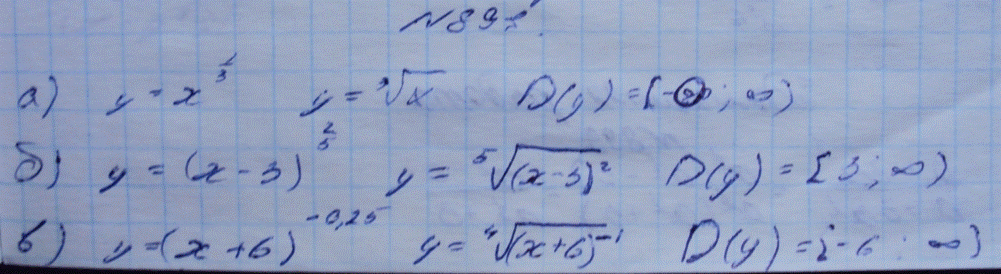 N891.
а) y = x^(1/3) y = ³√x D(y) = [-∞; ∞)
б) y = (x - 3)^(2/5) y = ⁵√(x-3)² D(y) = [3; ∞)
в) y = (x + 6)^(-0,25) y = ⁴√(x+6)⁻¹ D(y) = [-6; ∞)